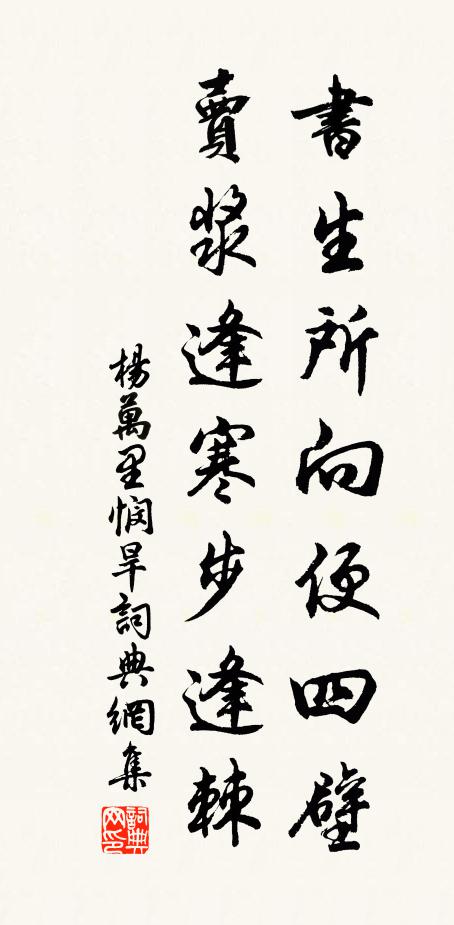 書生所向便四壁
賣漿逢寒步逢棘
楊萬里憫旱詞典網集
詞典网印